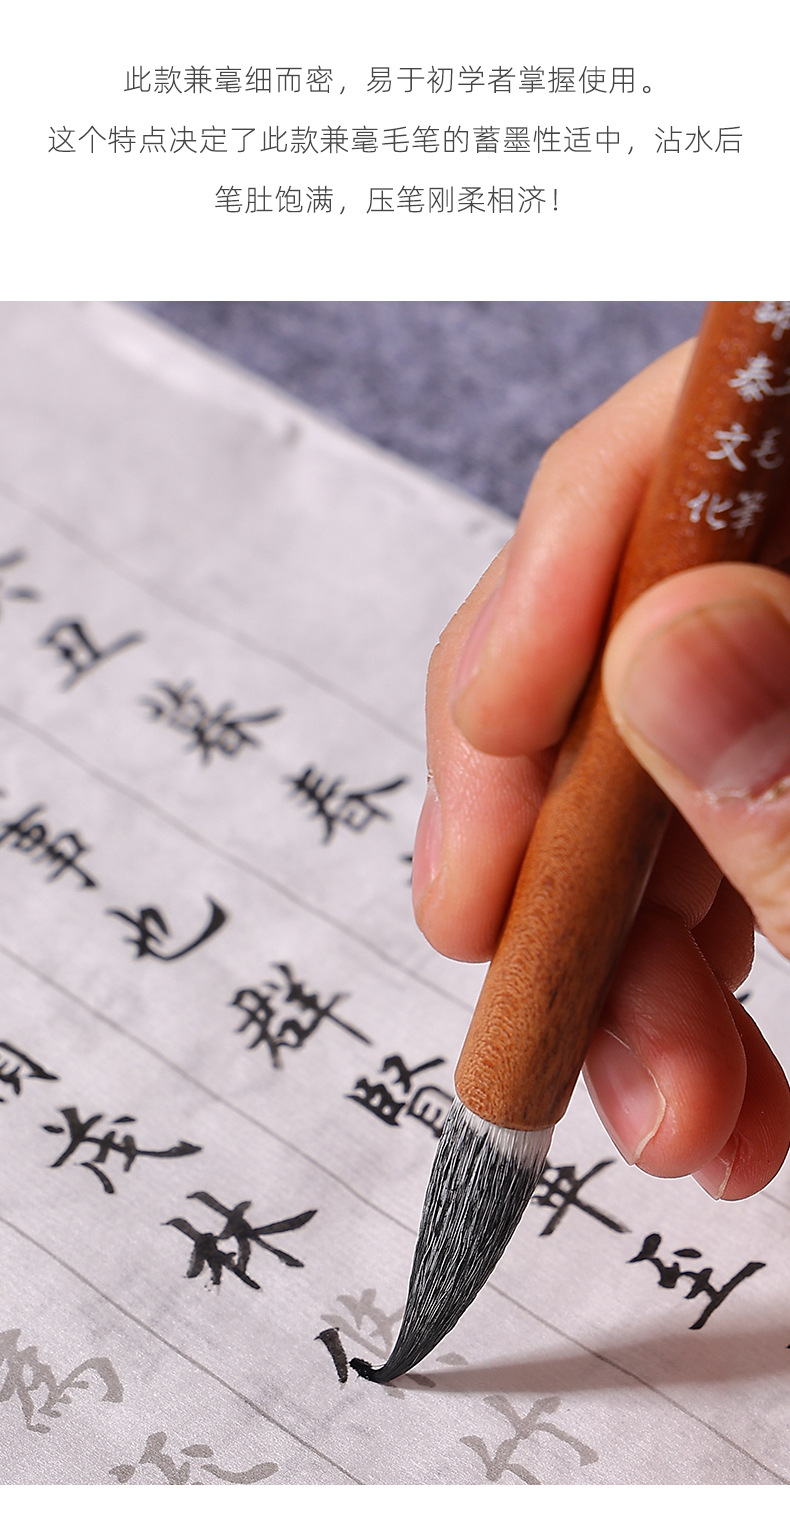 此款兼毫细而密，易于初学者掌握使用。
这个特点决定了此款兼毫毛笔的蓄墨性适中，沾水后
笔肚饱满，压笔刚柔相济！
秦文化
毛筆
丑暮春
事也群賢畢至
茂林脩竹
為流